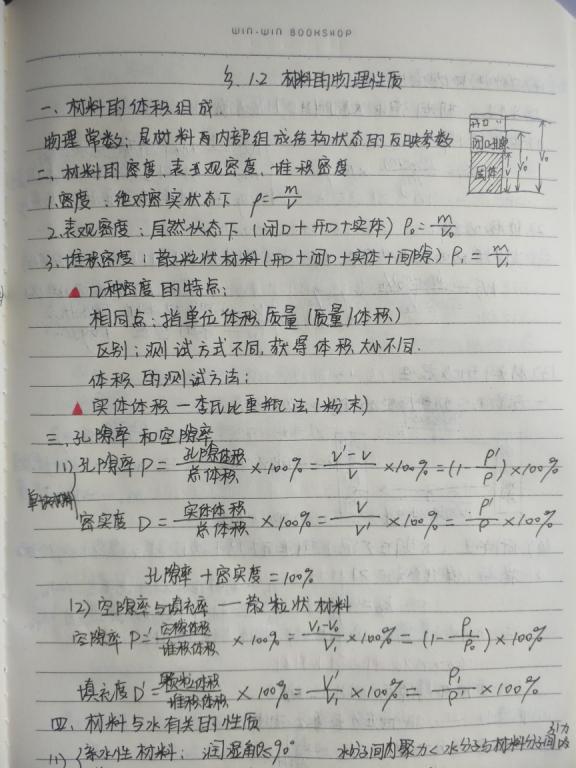 WIN-WIN BOOKSHOP
§. 1.2 材料的物理性质
一、材料的体积组成.
物理常数：是材料内部组成结构状态的反映参数
开口
闭口
固体
V V₀' V₀
二、材料的密度、表观密度、堆积密度
1.密度：绝对密实状态下 ρ=m/V
2.表观密度：自然状态下（闭口+开口+实体）ρ₀=m/V₀
3.堆积密度：散粒状材料（开口+闭口+实体+间隙）ρ₁=m/V₁
▲ 几种密度的特点：
相同点：指单位体积质量（质量/体积）
区别：测试方式不同，获得体积大小不同.
体积的测试方法：
▲ 实体体积—李氏比重瓶法（粉末）
三、孔隙率和空隙率
(1) 孔隙率 P=孔隙体积/总体积×100%=V'-V/V×100%=(1-ρ'/ρ)×100%
密实度 D=实体体积/总体积×100%=V/V'×100%=ρ'/ρ×100%
孔隙率+密实度=100%
(2) 空隙率与填充率—散粒状材料
空隙率 P'=空隙体积/堆积体积×100%=V₁-V₀/V₁×100%=(1-ρ₁/ρ₀)×100%
填充度 D'=颗粒体积/堆积体积×100%=V'/V₁×100%=ρ₁/ρ'×100%
四、材料与水有关的性质
(1) 亲水性材料：润湿角θ≤90° 水分子间内聚力<水分子与材料分子间引力